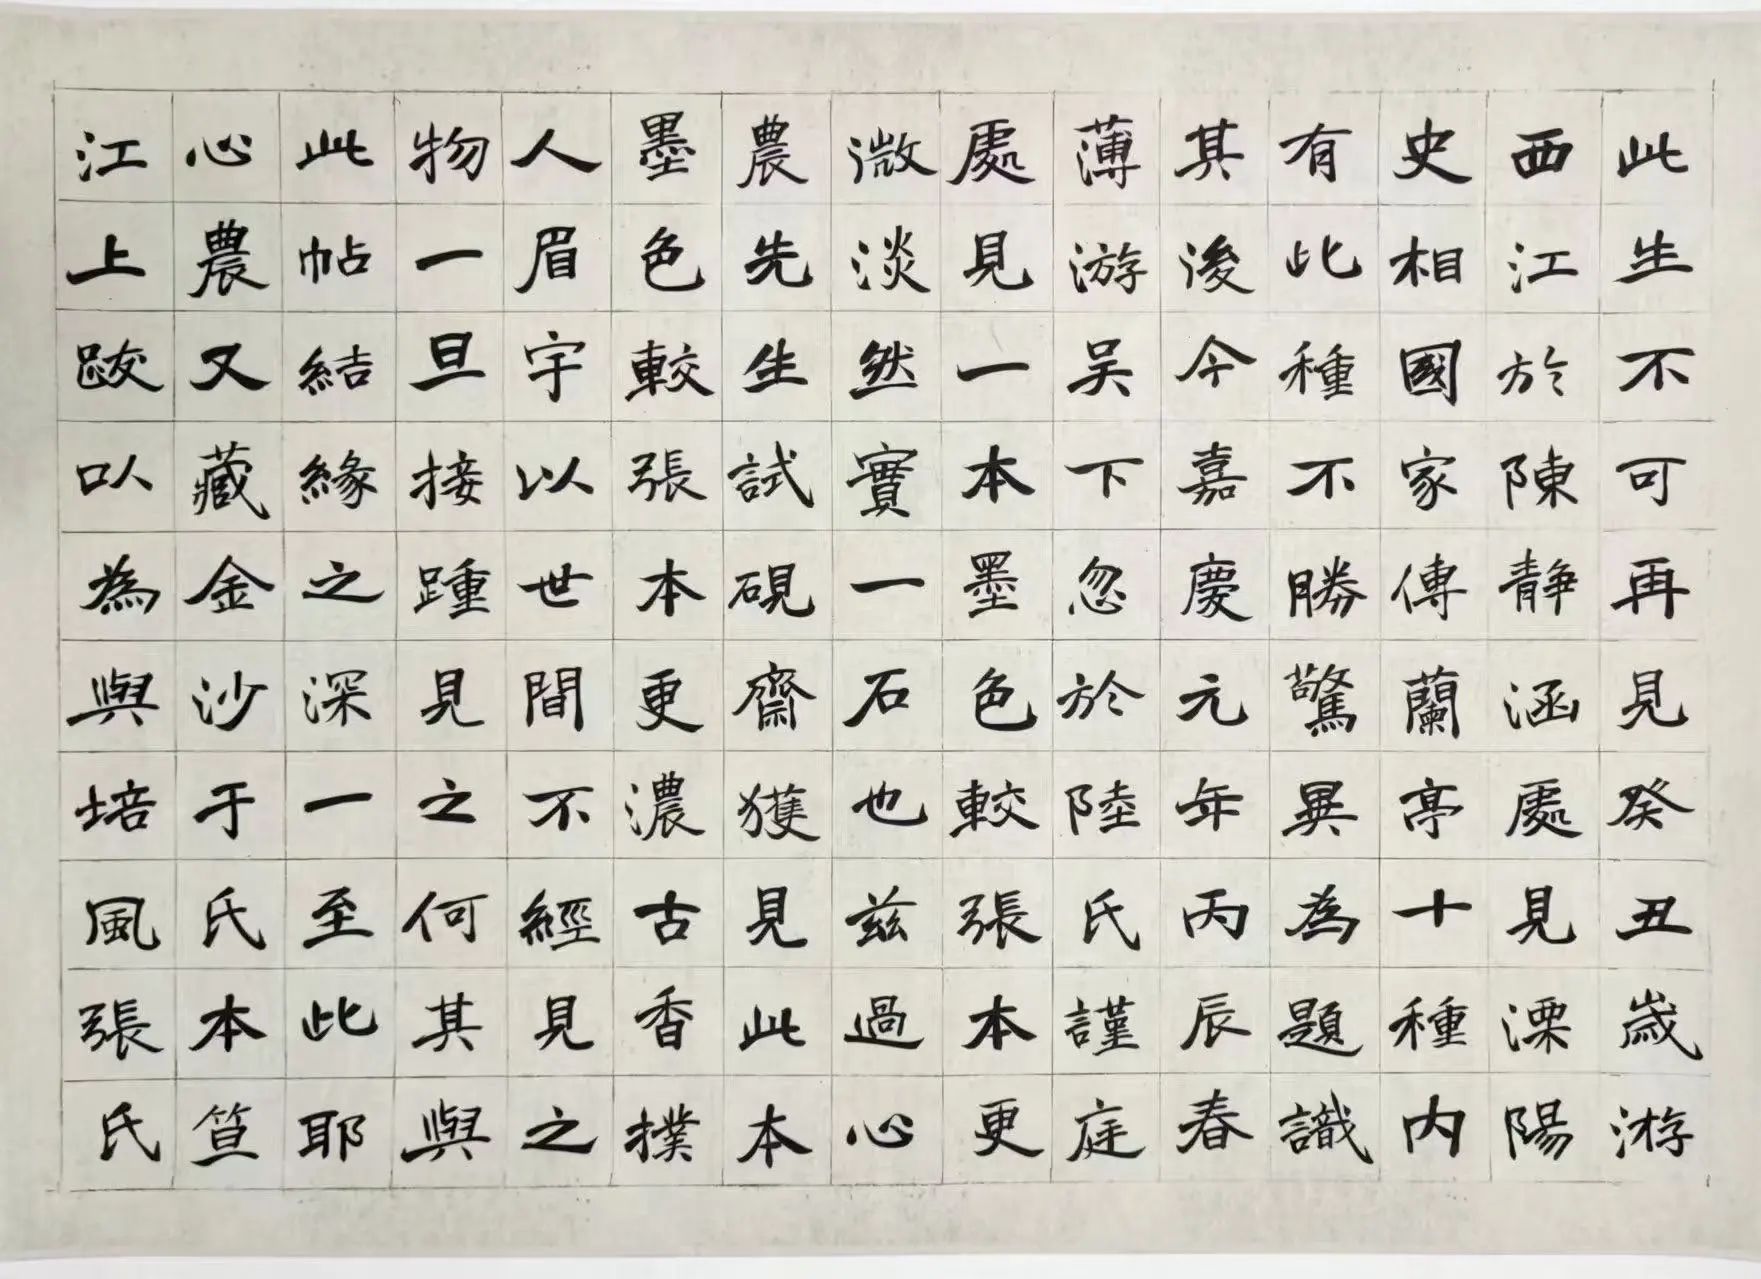 此生不可再見癸丑歲游
西江於陳靜涵處見溧陽
史相國家傳蘭亭十種內
有此種不勝驚異為題識
其後今嘉慶元年丙辰春
薄游吳下忽於陸氏謹庭
處見一本墨色較張本更
微淡然實一石也茲過心
農先生試硯齋獲見此本
墨色較張本更濃古香撲
人眉宇以世間不經見之
物一旦接踵見之何其與
此帖結緣之深一至此耶
心農又藏金沙于氏本笪
江上跋以為與培風張氏